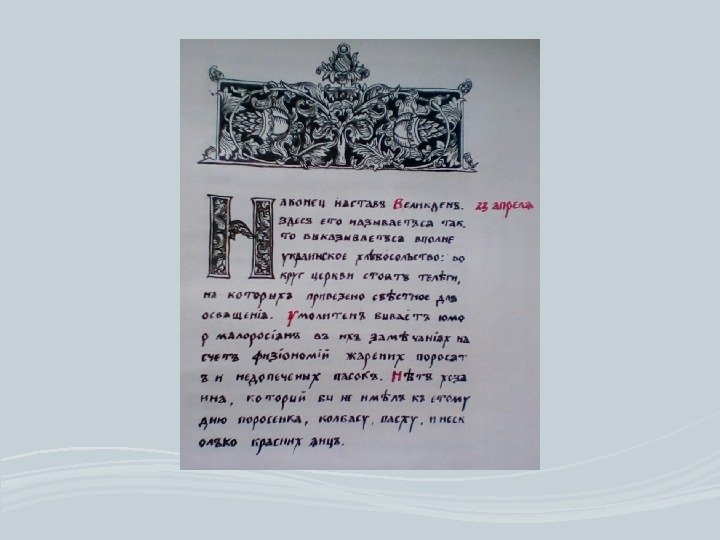 Наконец наставъ Великденъ. 23 апреля
Здесь ето называетъса так.
то выказываетъса вполне
украинское хлѣбосольство: во
круг церкви стоятъ телѣги,
на которыхъ привезено съѣстное для
осващенія. Умолителенъ бываетъ юмо
р малоросіанъ въ ихъ замѣчаніях на
счетъ физіономій жарених поросат
ъ и недопеченых пасокъ. Нѣтъ хоза
ина, который бы не имѣлъ къ етому
дню поросенка, колбасу, пасху, и неск
олько красних яицъ.